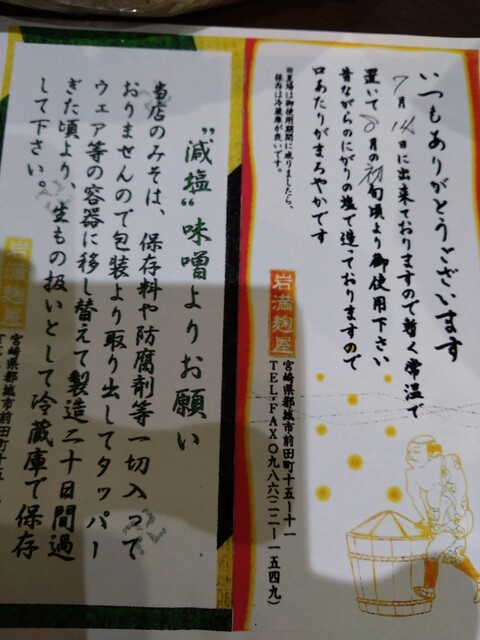 いつもありがとうございます
7月14日に出来ておりますので暫く常温で
置いて8月の初旬頃より御使用下さい
昔ながらのにがりの塩で造っておりますので
口あたりがまろやかです
※夏場は御使用期間に成りましたら、
保存は冷蔵庫が良いです。
岩満麹屋
宮崎県都城市前田町十五ー十一
TEL・FAX〇九八六(二二ー一五四九)
〝減塩〟味噌よりお願い
当店のみそは、保存料や防腐剤等一切入って
おりませんので包装より取り出してタッパー
ウェア等の容器に移し替えて製造二十日間過
ぎた頃より、生もの扱いとして冷蔵庫で保存
して下さい。
岩満麹屋
宮崎県都城市前田町十五